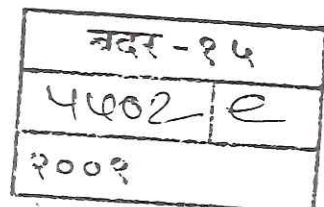 बदर -१५
५७०२ | १
२००९